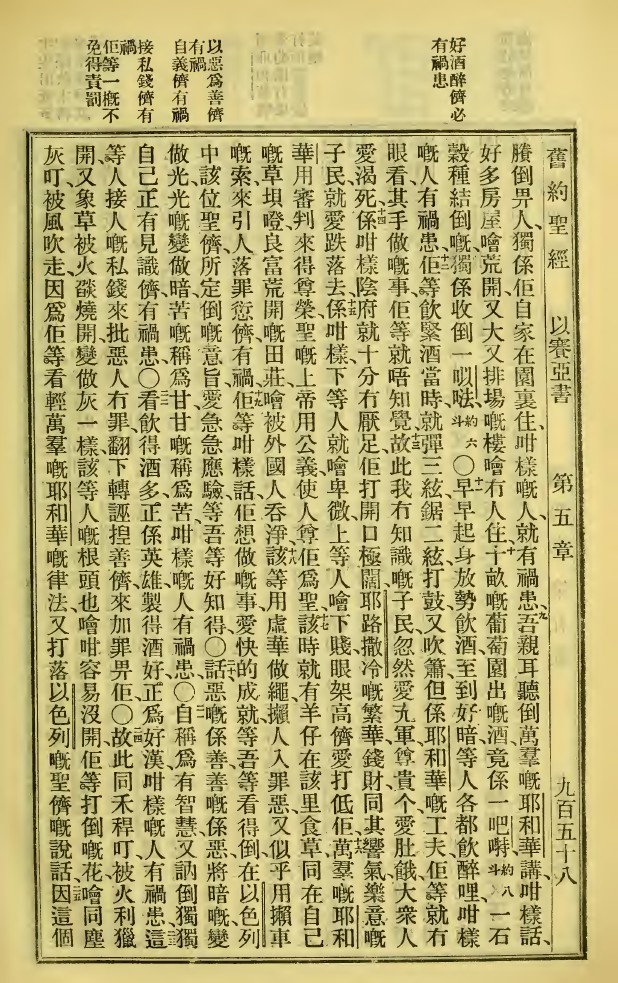 舊約聖經　以賽亞書　第五章　九百五十八
好酒醉儕必
有禍患
以惡爲善儕
有禍
自義儕有禍
接私錢儕有
禍
佢等一概不
免得責罰
賸倒畀人、獨係佢自家在園裏住、咁樣嘅人、就有禍患、九吾親耳聽倒萬羣嘅耶和華講、咁樣話、
好多房屋噲荒開、又大又排場嘅樓噲冇人住、十十畝嘅葡萄園出嘅酒竟係一吧㖡、約八斗一石
穀種結倒嘅、獨係收倒一㕥𠵽、約六斗〇十一早早起身放勢飲酒、至到好暗等人各都飲醉哩、咁樣
嘅人有禍患、十二佢等飲緊酒當時、就彈三絃鋸二絃打鼓又吹簫、但係耶和華嘅工夫、佢等就冇
眼看、其手做嘅事、佢等就唔知覺、十三故此我冇知識嘅子民忽然愛充軍、尊貴个愛肚餓、大衆人
愛渴死、十四係咁樣陰府就十分冇厭足、佢打開口極闊、耶路撒冷嘅繁華錢財、同其響氣樂意嘅
子民、就愛跌落去、十五係咁樣下等人就噲卑微、上等人噲下賤、眼架高儕愛打低佢、十六萬羣嘅耶和
華用審判來得尊榮、聖嘅上帝用公義、使人尊佢爲聖、十七該時就有羊仔在該里食草、同在自己
嘅草埧噔良、富荒開嘅田莊、噲被外國人吞淨、十八該等用虛華做繩擸人入罪惡、又似乎用擸車
嘅索來引人落罪愆儕有禍、十九佢等咁樣話、佢想做嘅事、愛快的成就、等吾等看得倒、在以色列
中該位聖儕所定倒嘅意旨、愛急急應驗、等吾等好知得〇二十話惡嘅係善、善嘅係惡、將暗嘅變
做光、光嘅變做暗、苦嘅稱爲甘、甘嘅稱爲苦、咁樣嘅人有禍患〇二一自稱爲有智慧、又訥倒獨獨
自己正有見識儕有禍患〇二二看飲得酒多正係英雄、製得酒好、正爲好漢、咁樣嘅人有禍患、二三這
等人接人嘅私錢、來批惡人冇罪、翻下轉誣揑善儕、來加罪畀佢〇二四故此同禾稈叮被火利獵
開、又象草被火燄燒開變做灰一樣、該等人嘅根頭也噲咁容易沒開、佢等打倒嘅花、噲同塵
灰叮被風吹走、因爲佢等看輕萬羣嘅耶和華嘅律法、又打落以色列嘅聖儕嘅說話、二五因這個